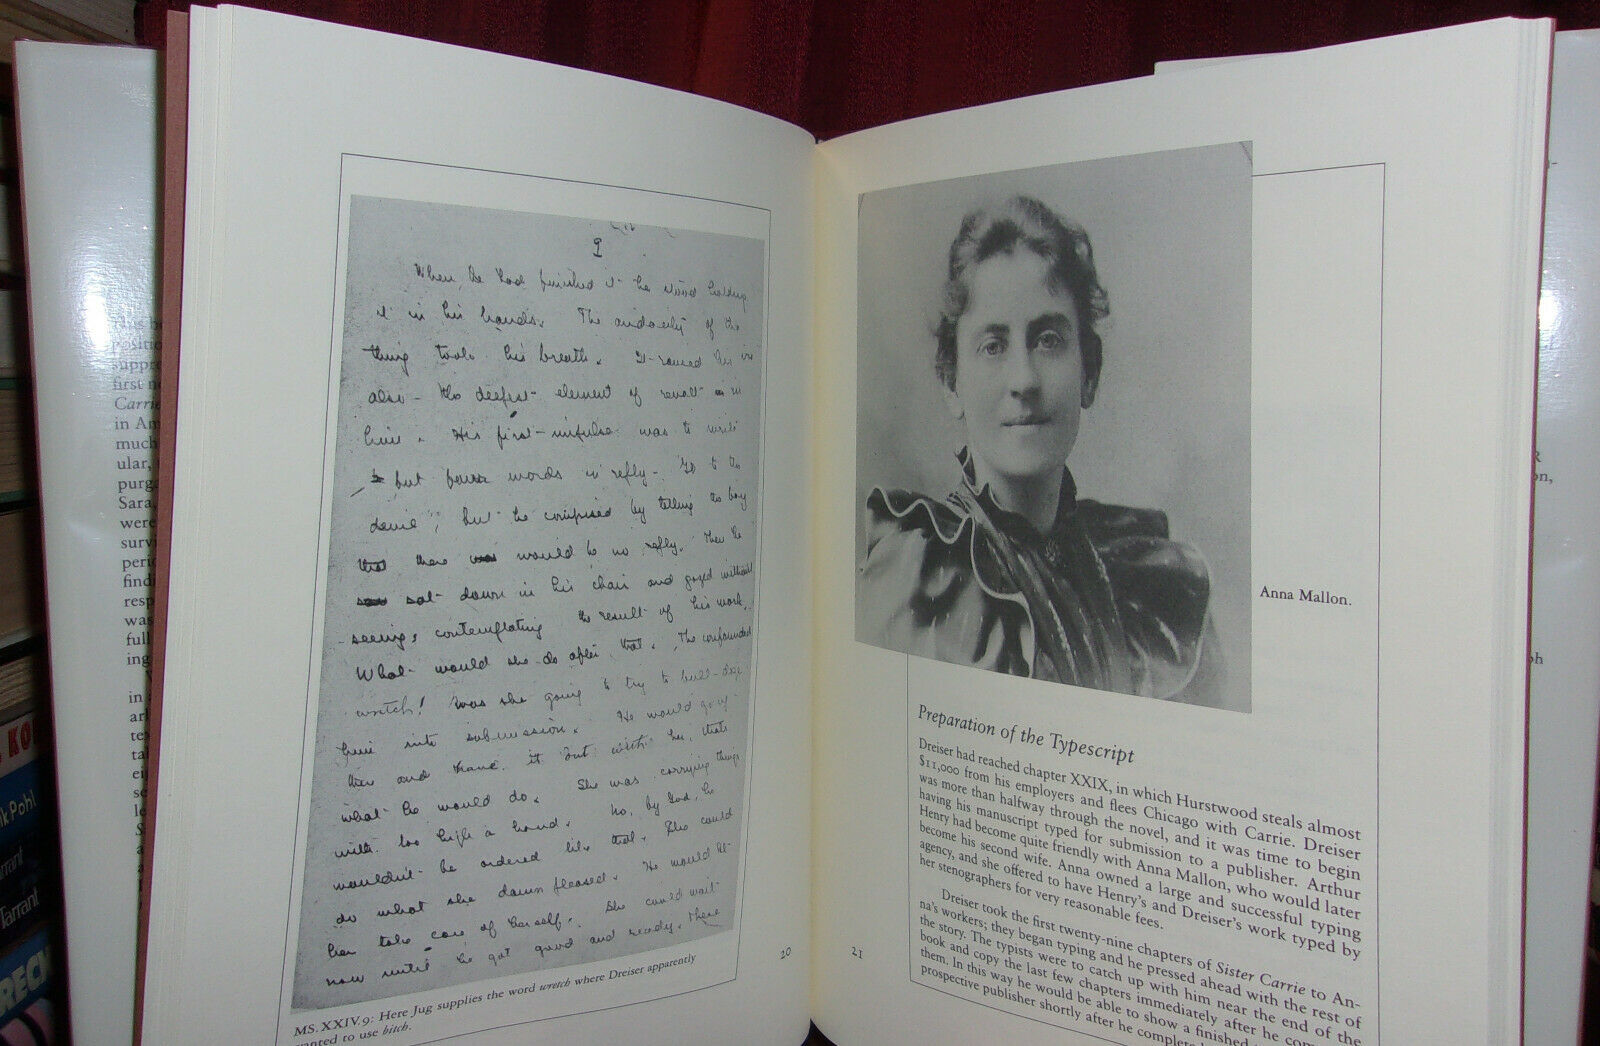 9
When he had finished it he stood holding
it in his hands. The audacity of the
thing took his breath. It roused his ire
also - the deepest element of revolt in
him. His first impulse was to write
but four words in reply - "Go to the
devil", but he compromised by telling the boy
that there would be no reply. Then he
sat down in his chair and gazed without
seeing, contemplating the result of his work.
What would she do after that. The confounded
wretch! Was she going to try to bull-doze
him into submission. He would go up
there and have it out with her, thats
what he would do. She was carrying things
with too high a hand. No, by God, he
wouldn't be ordered like that. She could
do what she damn pleased. He would let
her take care of herself. She could wait
now until he got good and ready. There
MS. XXIV.9: Here Jug supplies the word wretch where Dreiser apparently
wanted to use bitch.
20
21
Anna Mallon.
Preparation of the Typescript
Dreiser had reached chapter XXIX, in which Hurstwood steals almost
$11,000 from his employers and flees Chicago with Carrie. Dreiser
was more than halfway through the novel, and it was time to begin
having his manuscript typed for submission to a publisher. Arthur
Henry had become quite friendly with Anna Mallon, who would later
become his second wife. Anna owned a large and successful typing
agency, and she offered to have Henry's and Dreiser's work typed by
her stenographers for very reasonable fees.
Dreiser took the first twenty-nine chapters of Sister Carrie to An-
na's workers; they began typing and he pressed ahead with the rest of
the story. The typists were to catch up with him near the end of the
book and copy the last few chapters immediately after he com
them. In this way he would be able to show a finished
prospective publisher shortly after he complete
positio
suppre
first no
Carrie
in An
much
ular,
purg
Sara,
were
surv
perio
find
resp
was
full
ing
in
Pohl
Tarrant